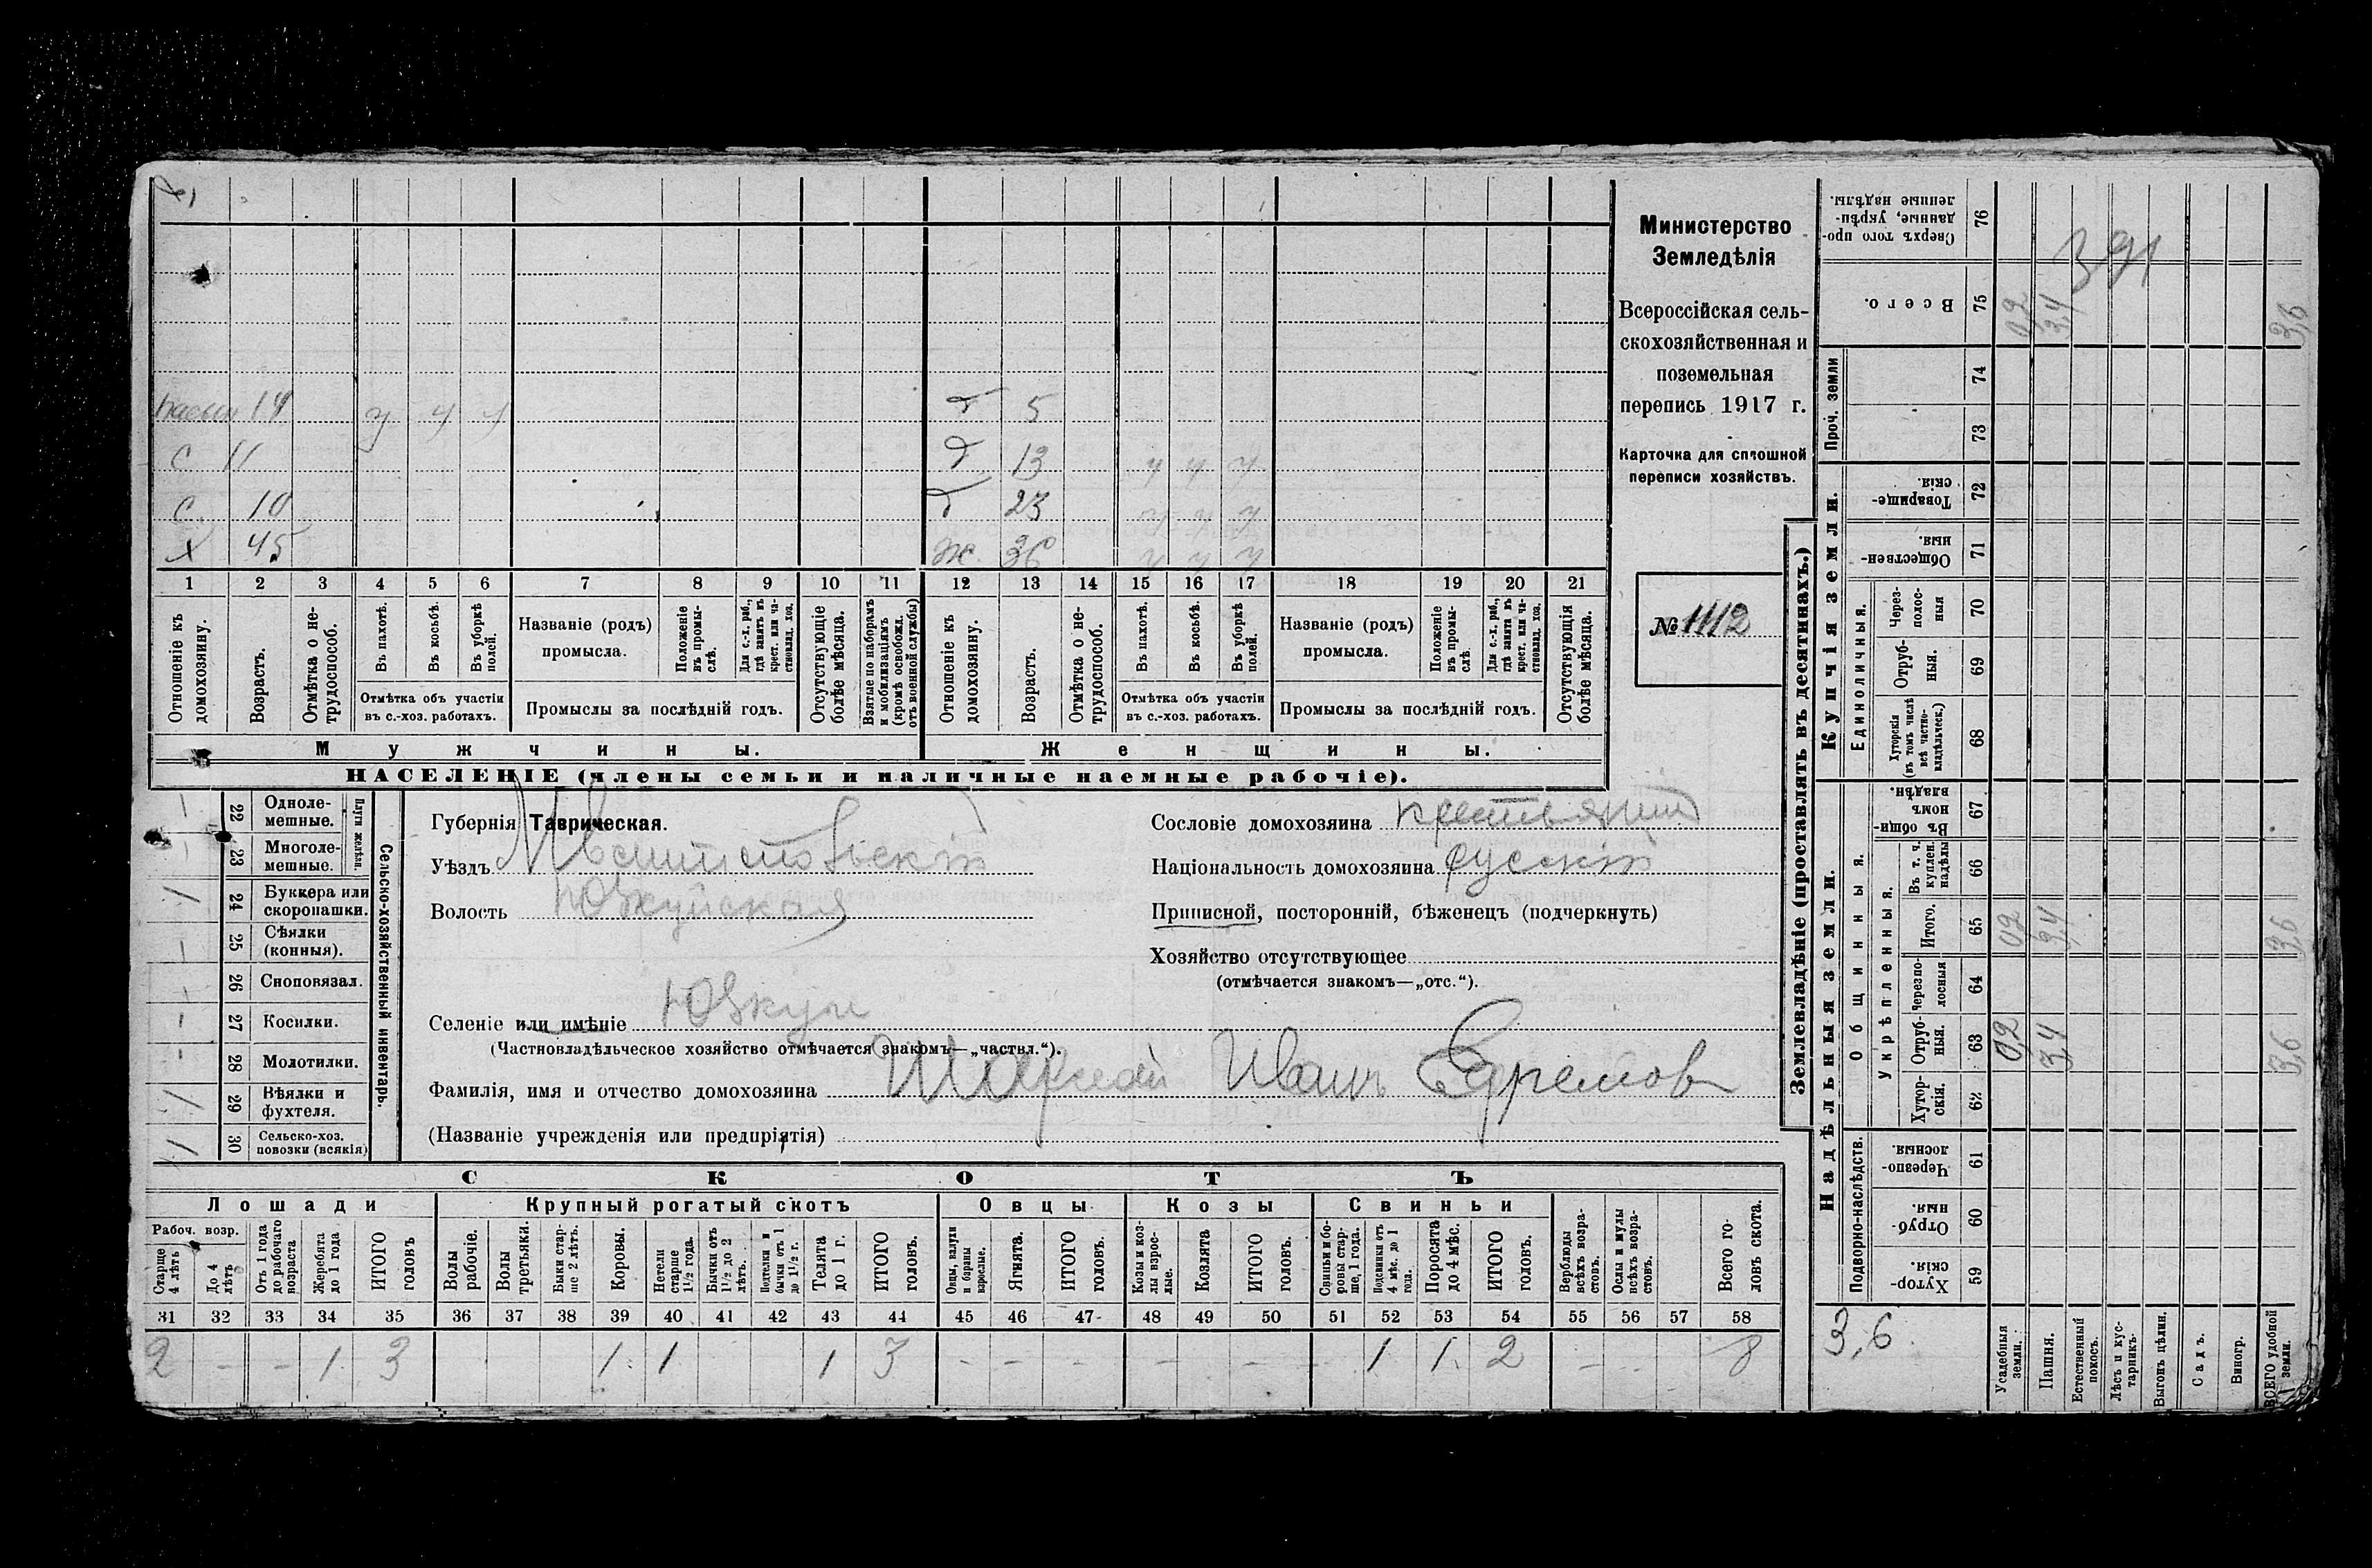 391
наемн 14 у у у д 5
с 11 д 13 у у у
с 10 д 23 у у у
х 45 ж. 36 у у у
1 2 3 4 5 6 7 8 9 10 11 12 13 14 15 16 17 18 19 20 21
Отношеніе къ домохозяину.
Возрастъ.
Отмѣтка о не-трудоспособ.
Въ пахотѣ.
Въ косьбѣ.
Въ уборкѣ полей.
Отмѣтка объ участіи
въ с.-хоз. работахъ.
Названіе (родъ)
промысла.
Положеніе въ промы-слѣ.
Для с.-х. раб., гдѣ занятъ въ крест. или ча-стновлад. хоз.
Промыслы за послѣдній годъ.
Отсутствующіе болѣе мѣсяца.
Взятые по наборамъ и мобилизаціямъ (кромѣ освобожд. отъ военной службы)
Отношеніе къ домохозяину.
Возрастъ.
Отмѣтка о не-трудоспособ.
Въ пахотѣ.
Въ косьбѣ.
Въ уборкѣ полей.
Отмѣтка объ участіи
въ с.-хоз. работахъ.
Названіе (родъ)
промысла.
Положеніе въ промы-слѣ.
Для с.-х. раб., гдѣ занята въ крест. или ча-стновлад. хоз.
Промыслы за послѣдній годъ.
Отсутствующія болѣе мѣсяца.
Мужчины.
Женщины.
НАСЕЛЕНІЕ (члены семьи и наличные наемные рабочіе).
Министерство
Земледѣлія
Всероссійская сель-
скохозяйственная и
поземельная
перепись 1917 г.
Карточка для сплошной
переписи хозяйствъ.
№ 1112
22 Одноле-мешные.
23 Многоле-мешные.
Плуги желѣзн.
24 Буккера или скоропашки. 1
25 Сѣялки (конныя). —
26 Сноповязал. —
27 Косилки. —
28 Молотилки. -
29 Вѣялки и фухтеля. 1
30 Сельско-хоз. повозки (всякія) 1
Сельско-хозяйственный инвентарь.
Губернія Таврическая.
Уѣздъ Мелитопольскій
Волость Юзкуйская
Селеніе или имѣніе Юзкуи
(Частновладѣльческое хозяйство отмѣчается знакомъ—„частвл.“).
Фамилія, имя и отчество домохозяина Иванъ Ефремов
(Названіе учрежденія или предпріятія)
Сословіе домохозяина крестьянин
Національность домохозяина русскій
Приписной, посторонній, бѣженецъ (подчеркнуть)
Хозяйство отсутствующее
(отмѣчается знакомъ—„отс.“).
СКОТЪ
Лошади
Крупный рогатый скотъ
Овцы
Козы
Свиньи
Рабоч. возр.
Старше 4 лѣтъ
До 4 лѣтъ
Отъ 1 года до рабочаго возраста
Жеребята до 1 года
ИТОГО головъ
Волы рабочіе.
Волы третьяки.
Быки стар-ше 2 лѣтъ.
Коровы.
Нетели старше 1½ года.
Бычки отъ 1½ до 2 лѣтъ.
Подтелки и бычки отъ 1 до 1½ г.
Телята до 1 г.
ИТОГО головъ.
Овцы, валухи и бараны взрослые.
Ягнята.
ИТОГО головъ.
Козы и коз-лы взрос-лые.
Козлята
ИТОГО головъ.
Свиньи и бо-ровы стар-ше, 1 года.
Подсвинки отъ 4 мѣс. до 1 года.
Поросята до 4 мѣс.
ИТОГО головъ.
Верблюды всѣхъ возра-стовъ.
Ослы и мулы всѣхъ возра-стовъ.
Всего го-ловъ скота.
31 32 33 34 35 36 37 38 39 40 41 42 43 44 45 46 47 48 49 50 51 52 53 54 55 56 57 58
2 - - 1 3 1 1 1 3 - - - - - - 1 1 2 - 8
Землевладѣніе (проставлять въ десятинахъ.)
Надѣльныя земли.
Купчія земли.
Подворно-наслѣдств.
59 Хутор-скія.
60 Отруб-ныя.
61 Черезпо-лосныя
Общинныя.
Укрѣпленныя.
62 Хутор-скія.
63 Отруб-ныя. 0,2 3,4 3,6
64 Черезпо-лосныя
65 Итого. 0,2 3,4 3,6
66 Въ т. ч. куплен. надѣлы
67 Въ общи-номъ владѣн.
Единоличныя.
68 Хуторскія (въ томъ числѣ всѣ частно-владѣльческ.)
69 Отруб-ныя.
70 Через-полос-ныя
71 Обществен-ныя.
72 Товарище-скія.
Проч. земли
73
74
75 Всего. 0,2 3,4 3,6
76 Сверхъ того про-данные, укрѣп-ленные надѣлы.
3,6
Усадебныя земли.
Пашня.
Естественный покосъ.
Лѣсъ и кус-тарникъ.
Выгонъ цѣлин.
Садъ.
Виногр.
ВСЕГО удобной земли.